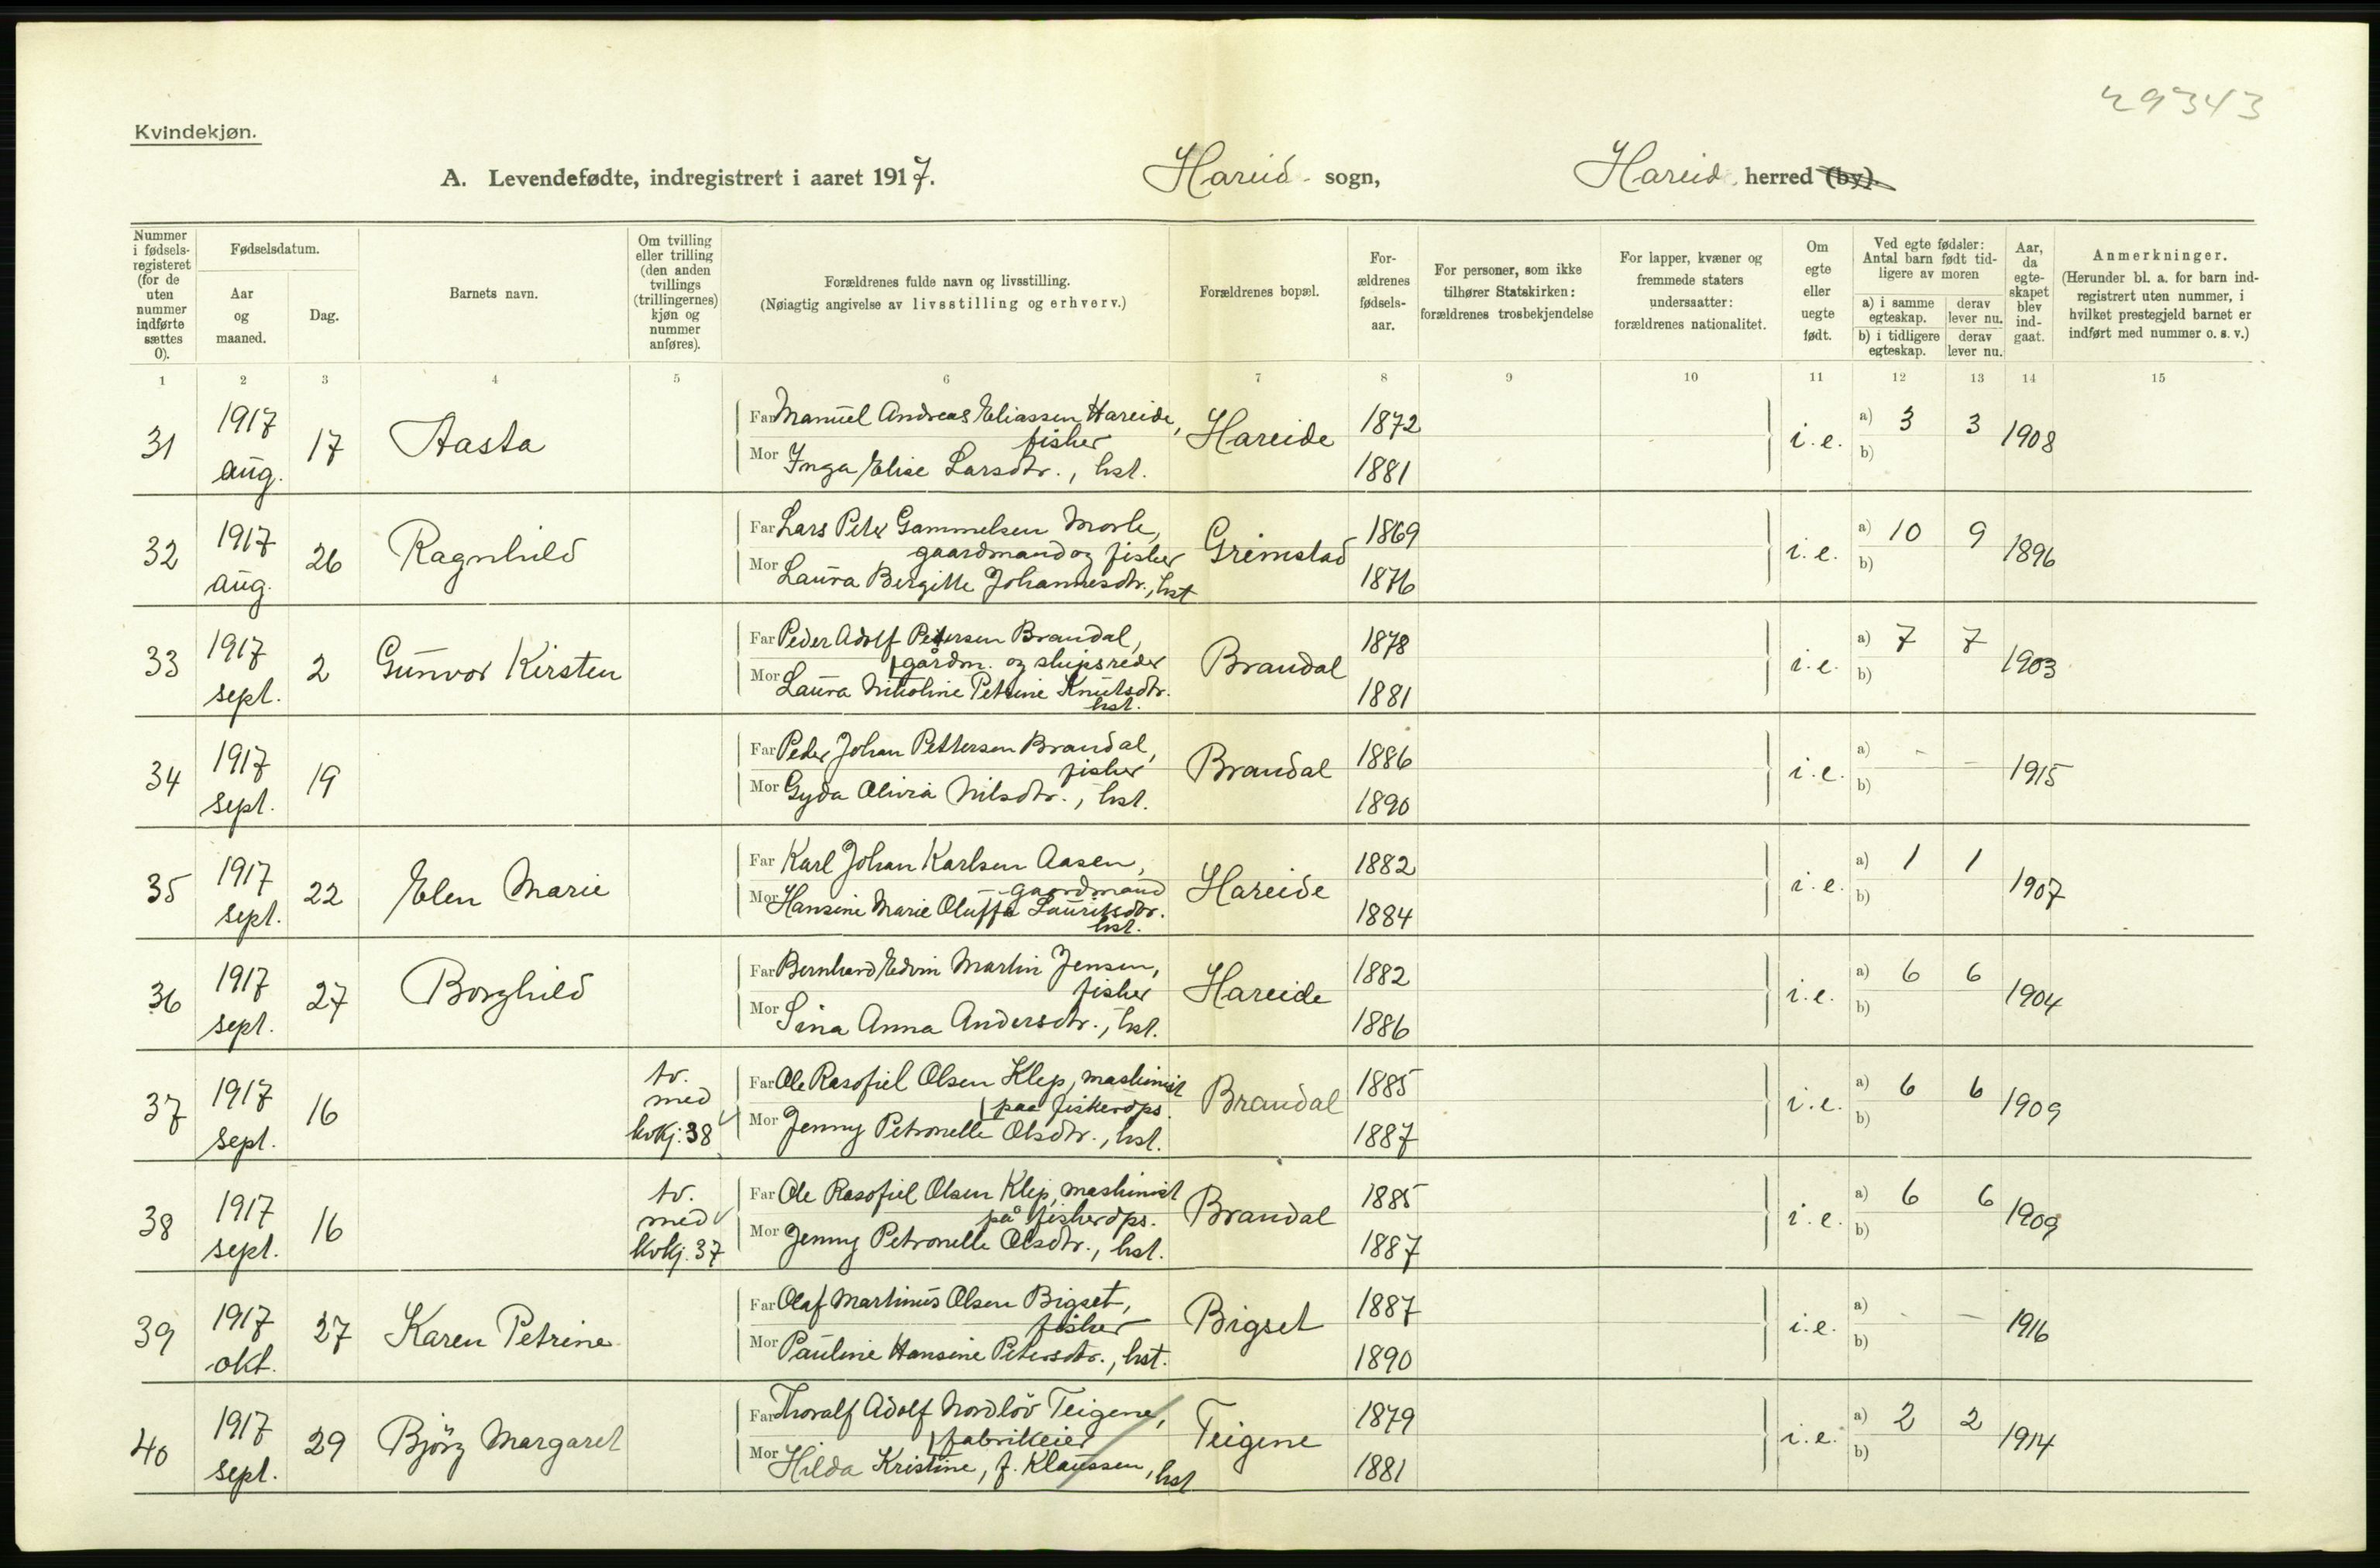 29343
Kvindekjøn.
A. Levendefødte, indregistrert i aaret 1917. Hareid sogn, Hareid herred (by).
Nummer i fødsels-registeret (for de uten nummer indførte sættes 0).
Fødselsdatum.
Aar og maaned.
Dag.
Barnets navn.
Om tvilling eller trilling (den anden tvillings (trillingernes) kjøn og nummer anføres).
Forældrenes fulde navn og livsstilling.
(Nøiagtig angivelse av livsstilling og erhverv.)
Forældrenes bopæl.
For-ældrenes fødsels-aar.
For personer, som ikke tilhører Statskirken: forældrenes trosbekjendelse
For lapper, kvæner og fremmede staters undersaatter: forældrenes nationalitet.
Om egte eller uegte født.
Ved egte fødsler: Antal barn født tid-ligere av moren
a) i samme egteskap. derav lever nu.
b) i tidligere egteskap. derav lever nu.
Aar, da egte-skapet blev ind-gaat.
Anmerkninger.
(Herunder bl. a. for barn ind-registrert uten nummer, i hvilket prestegjeld barnet er indført med nummer o. s. v.)
1 2 3 4 5 6 7 8 9 10 11 12 13 14 15
31 1917 aug. 17 Aasta
Far Manuel Andreas Eliassen Hareide, fisker
Mor Inga Elise Larsdtr., hst.
Hareide 1872 1881 i.e. a) 3 3 b) 1908
32 1917 aug. 26 Ragnhild
Far Lars Peter Gammelsen Mork, gaardmand og fisker
Mor Laura Bergitte Johannesdtr., hst
Grimstad 1869 1876 i.e. a) 10 9 b) 1896
33 1917 sept. 2 Gunvor Kirsten
Far Peder Adolf Petersen Brandal, gårdm. og skipsreder
Mor Laura Nikoline Petrine Knutsdtr. hst.
Brandal 1878 1881 i.e. a) 7 7 b) 1903
34 1917 sept. 19
Far Peder Johan Pettersen Brandal, fisker
Mor Gyda Olivia Nilsdtr., hst.
Brandal 1886 1890 i.e. a) - - b) 1915
35 1917 sept. 22 Elen Marie
Far Karl Johan Karlsen Aasen, gaardmand
Mor Hansine Marie Oluffa Lauritsdtr. hst.
Hareide 1882 1884 i.e. a) 1 1 b) 1907
36 1917 sept. 27 Borghild
Far Bernhard Edvin Martin Jensen, fisker
Mor Sina Anna Andersdtr., hst.
Hareide 1882 1886 i.e. a) 6 6 b) 1904
37 1917 sept. 16 tv. med kvkj. 38
Far Ole Rasofiel Olsen Klep, maskinist paa fiskerdps.
Mor Jenny Petronelle Olsdtr., hst.
Brandal 1885 1887 i.e. a) 6 6 b) 1909
38 1917 sept. 16 tv. med kvkj. 37
Far Ole Rasofiel Olsen Klep, maskinist på fiskerdps.
Mor Jenny Petronelle Olsdtr., hst.
Brandal 1885 1887 i.e. a) 6 6 b) 1909
39 1917 okt. 27 Karen Petrine
Far Olaf Martinus Olsen Bigset, fisker
Mor Pauline Hansine Petersdtr., hst.
Bigset 1887 1890 i.e. a) - - b) 1916
40 1917 sept. 29 Bjørg Margaret
Far Thoralf Adolf Nordløv Teigene, fabrikeier
Mor Hilda Kristine, f. Klaussen, hst
Teigene 1879 1881 i.e. a) 2 2 b) 1914